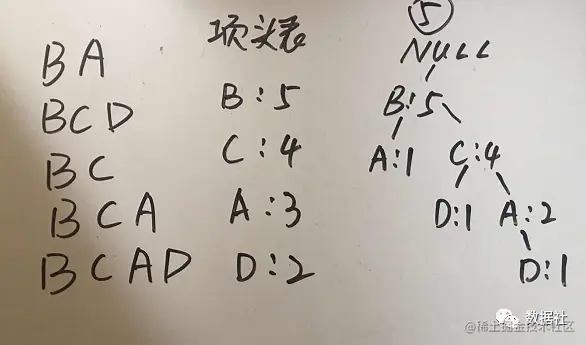 BA
BCD
BC
BCA
BCAD
项头表
B:5
C:4
A:3
D:2
⑤
NULL
B:5
A:1 C:4
D:1 A:2
D:1
数据社
@稀土掘金技术社区